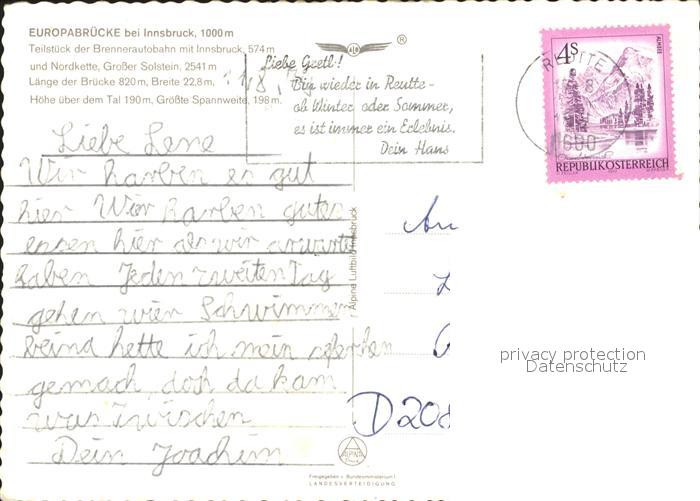 EUROPABRÜCKE bei Innsbruck, 1000 m
Teilstück der Brennerautobahn mit Innsbruck, 574 m
und Nordkette, Großer Solstein, 2541 m
Länge der Brücke 820 m, Breite 22,8 m,
Höhe über dem Tal 190 m, Größte Spannweite, 198 m.
®
Liebe Gretl!
Bin wieder in Reutte -
ob Winter oder Sommer,
es ist immer ein Erlebnis.
Dein Hans
REUTTE
6600
4S
ALMSEE
REPUBLIK ÖSTERREICH
Liebe Lene
Wir harben es gut
hier Wir harben gutes
essen hier als wir arwartet
haben Jeden zweiten Tag
gehen wier Schwimmen
Beind hette ich mein
gemach doch da kam
was zwischen
Dein Joachim
Alpine Luftbild Innsbruck
An
D 208
privacy protection
Datenschutz
ALPINE
Freigegeben v. Bundesministerium f.
LANDESVERTEIDIGUNG